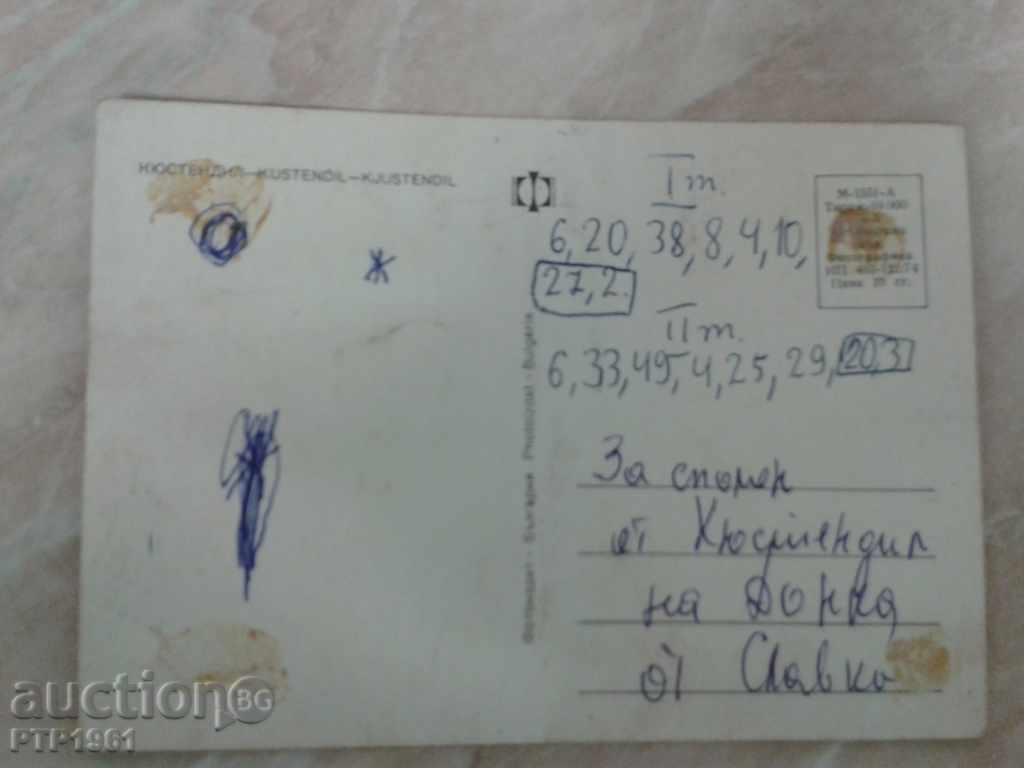 КЮСТЕНДИЛ—KUSTENDIL—KJUSTENDIL
I т.
6, 20, 38, 8, 4, 10,
27, 2.
II т.
6, 33, 45, 4, 25, 29, 20,3
М-1551-А
Цена 10 ст.
Фотоиздат - България Photoizdat - Bulgaria
За спомен
от Кюстендил
на Донка
от Славка
auction BG
PTP1961